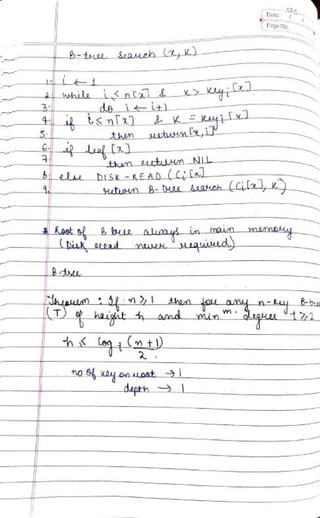 Date: / /
Page No.
B-tree search (x, k)
1. i ← 1
2. while i ≤ n[x] & k > keyi [x]
3. do i ← i+1
4. if i ≤ n[x] & k = keyi [x]
5. then return [x, i]
6. if leaf [x]
7. then return NIL
8. else DISK-READ (Ci[x]
9. return B-tree search (Ci[x], k)
* Root of B tree always in main memory
(Disk read never required)
B-tree
Theorem : If n ≥ 1 then for any n-key B-tree
(T) of height h and min m. degree t ≥ 2
h ≤ log t (n+1)
2
no of key on root → 1
depth → 1